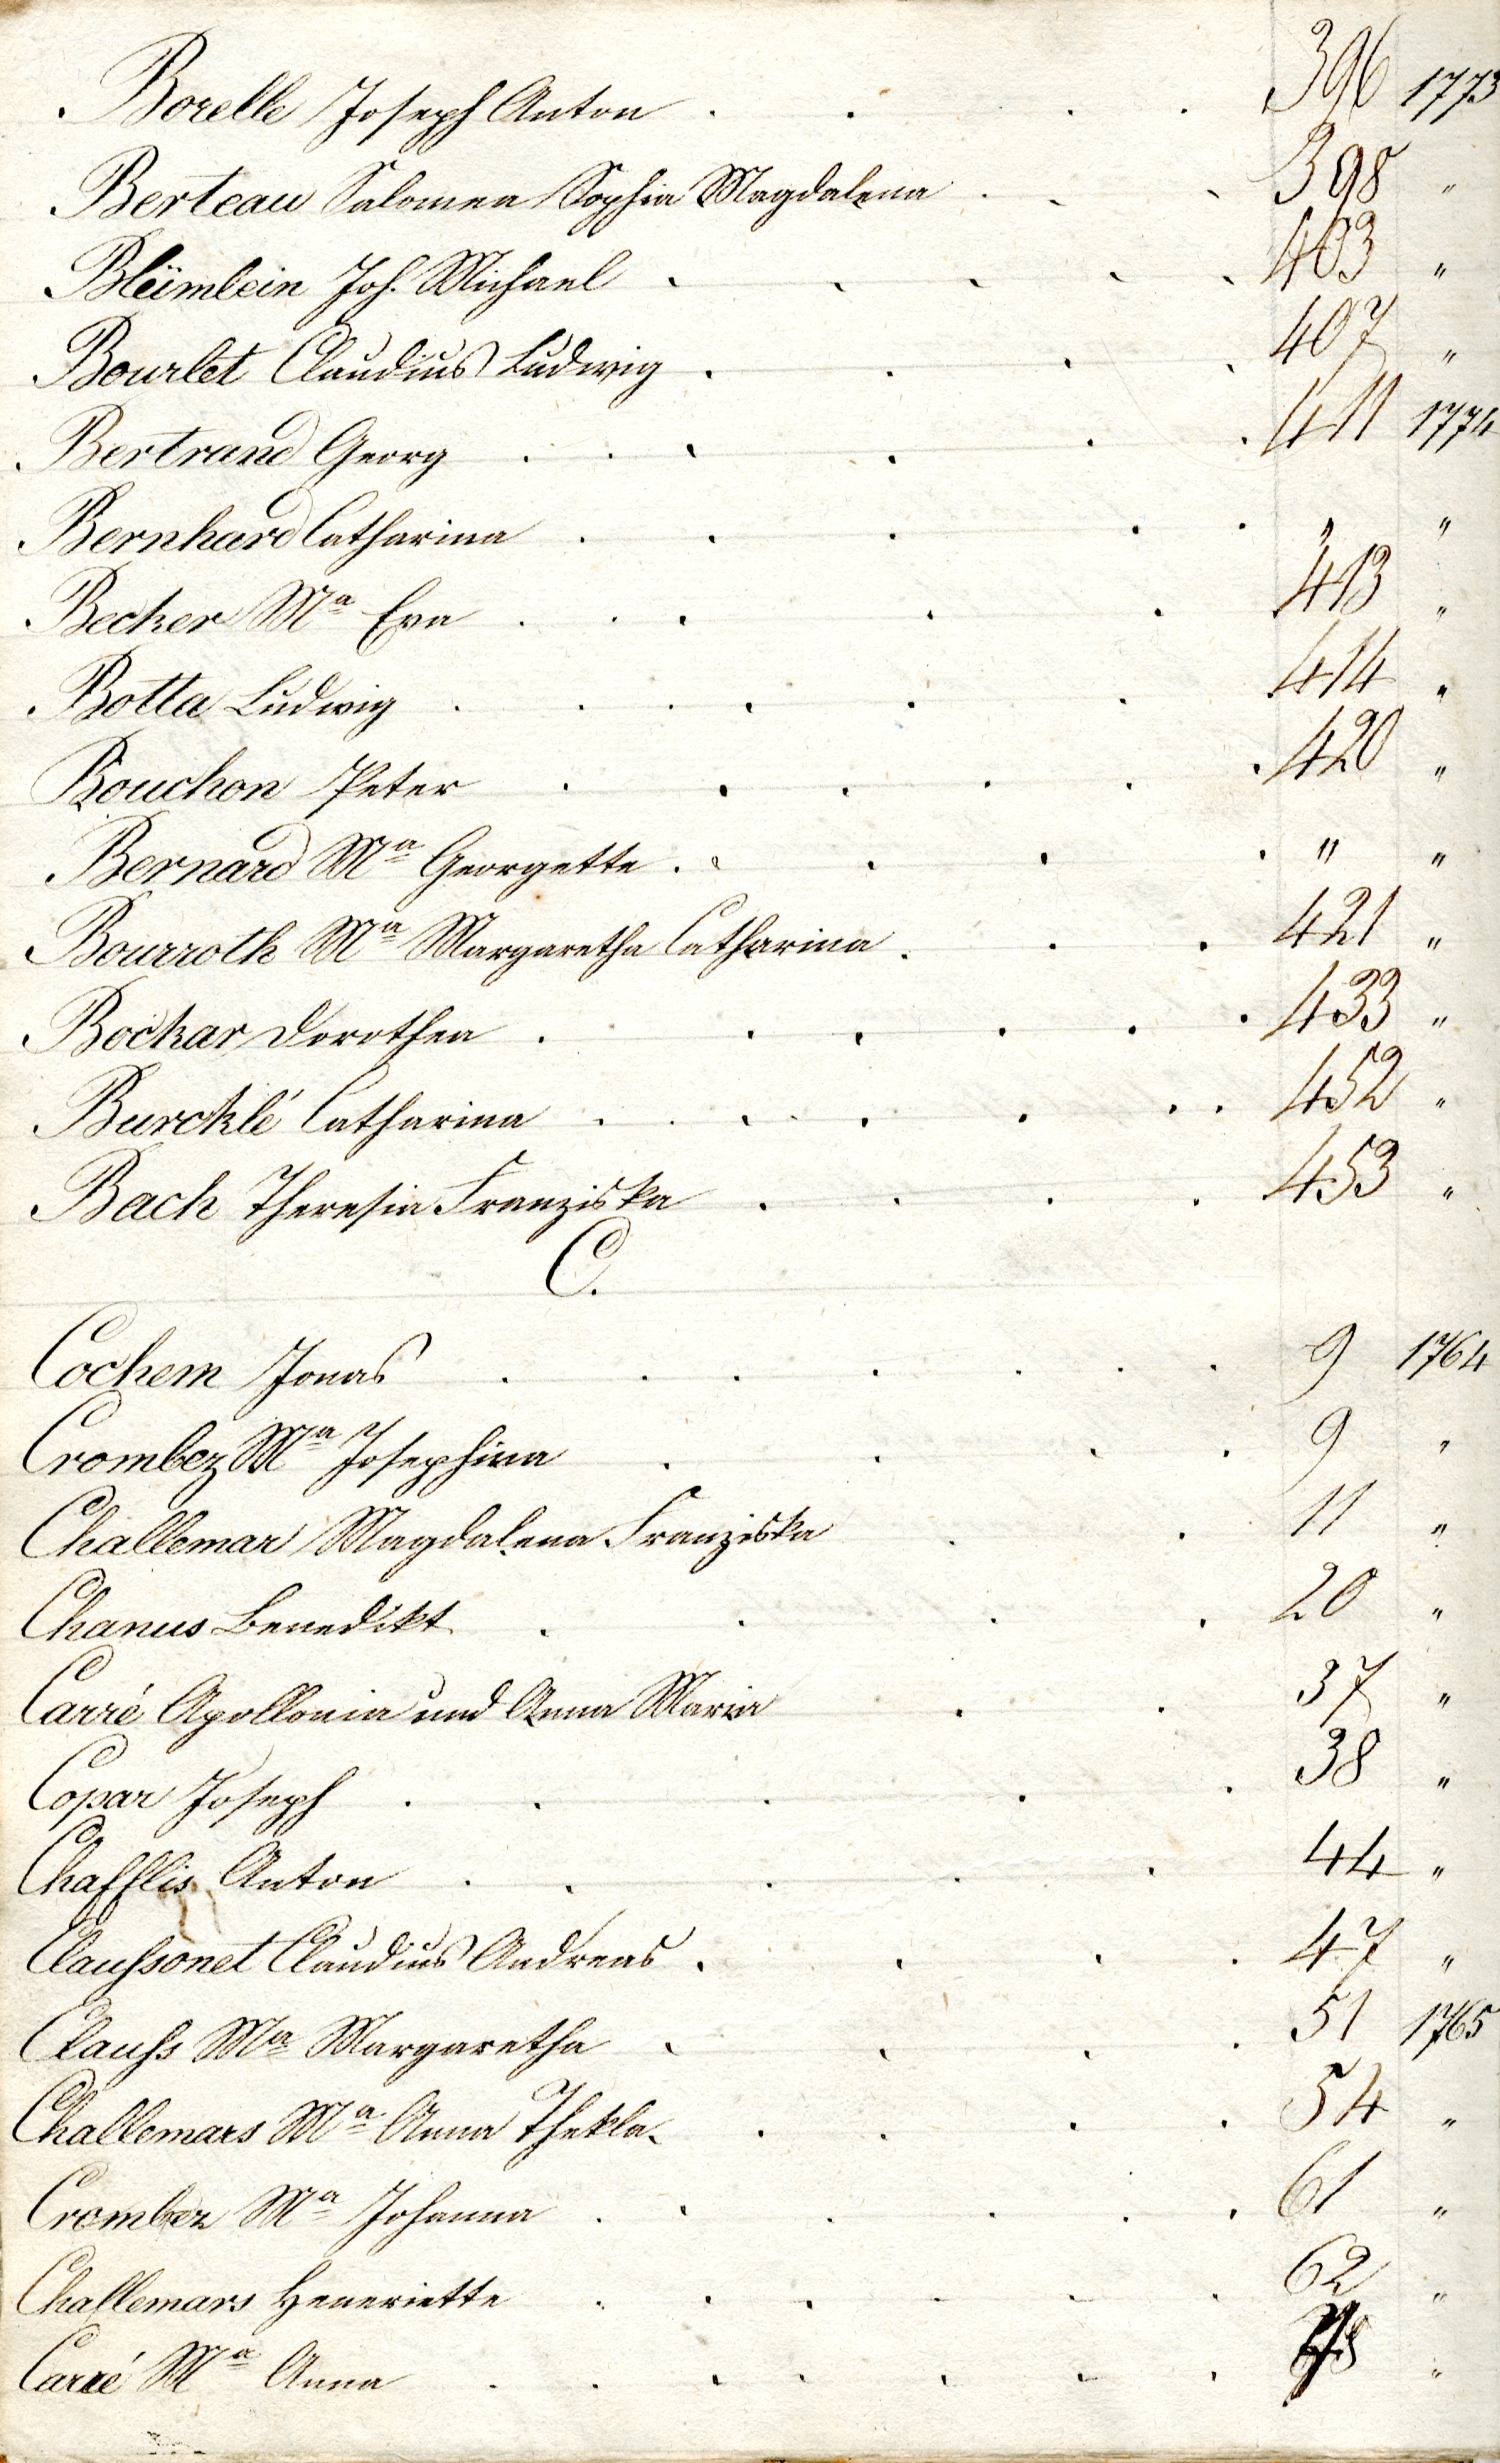 Borelle Joseph Anton . . . . 396 1773
Berteau Salomea Sophia Magdalena . . . 398 "
Blümlein Joh. Michael . . . . . 403 "
Bourlet Claudius Ludwig . . . . 407 "
Bertrand Georg . . . . . . 411 1774
Bernhard Catharina . . . . . " "
Becker Ma Eva . . . . . 413 "
Botta Ludwig . . . . . . 414 "
Bouchon Peter . . . . . . 420 "
Bernard Ma Georgette . . . . . " "
Bourroth Ma Margaretha Catharina . . . 421 "
Bockar Dorothea . . . . . . 433 "
Burcklé Catharina . . . . . . . 452 "
Bach Theresia Franziska . . . . 453 "
C.
Cochem Jonas . . . . . . 9 1764
Crombez Ma Josephina . . . . 9 "
Challemar Magdalena Franziska . . 11 "
Chanus Benedikt . . . . 20 "
Carré Apollonia und Anna Maria . . 37 "
Copar Joseph . . . . . 38 "
Chafflis Anton . . . . . 44 "
Claussonet Claudius Andreas . . . . 47 "
Clauss Ma Margaretha . . . . 51 1765
Challemars Ma Anna Thekla . . . . 54 "
Crombez Ma Johanna . . . . . . 61 "
Challemars Heneriette . . . . . . 62 "
Carré Ma Anna . . . . . . "